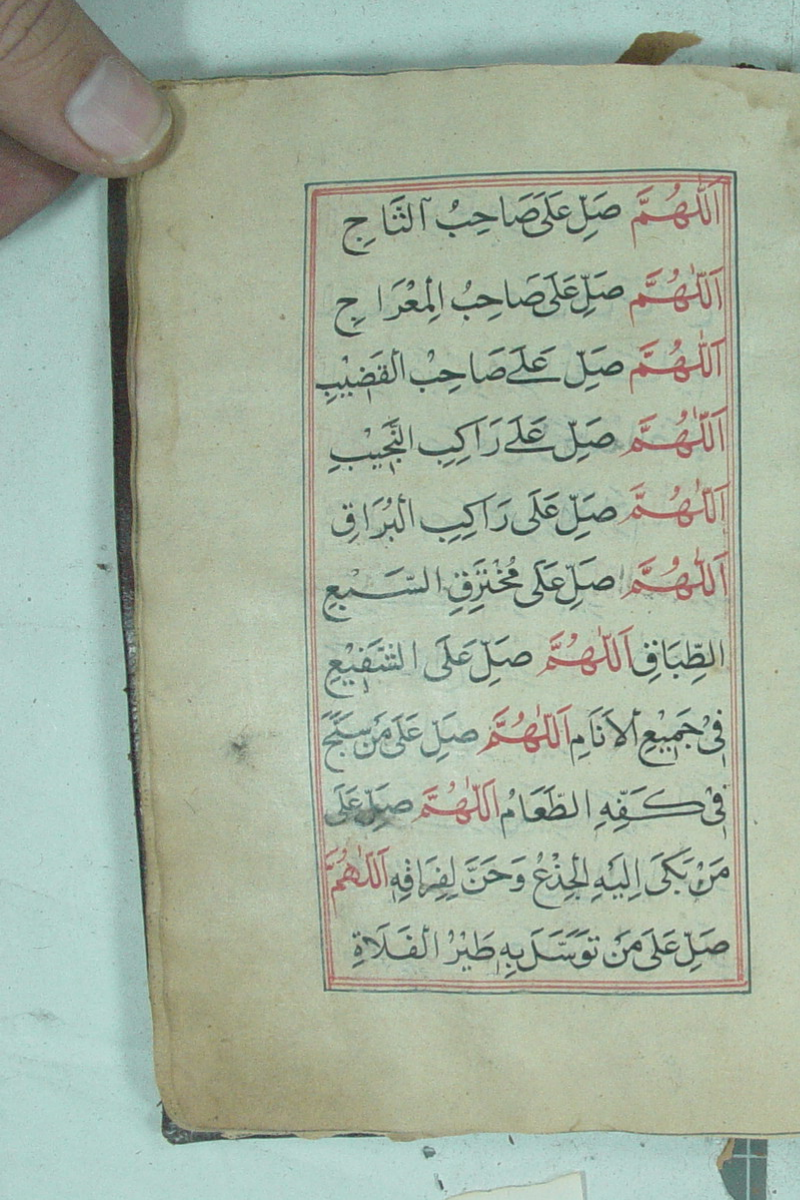 اَللّٰهُمَّ صَلِّ عَلَى صَاحِبُ اَلتَّاجِ
اَللّٰهُمَّ صَلِّ عَلَى صَاحِبُ الْمِعْرَاجِ
اَللّٰهُمَّ صَلِّ عَلَے صَاحِبْ الْقَضِيْبِ
اَللّٰهُمَّ صَلِّ عَلَے رَاكِبِ النَّجِيْبِ
اَللّٰهُمَّ صَلِّ عَلَى رَاكِبِ الْبُرَاقِ
اَللّٰهُمَّ صَلِّ عَلَى مُخْتَرِقِ السَّبْعِ
الطِّبَاقِ اَللّٰهُمَّ صَلِّ عَلَى الشَّفِيْعِ
فِىْ جَمِيْعِ الْاَنَامِ اَللّٰهُمَّ صَلِّ عَلَى مَنْ سَبَّحَ
فِىْ كَفِّهِ الطَّعَامُ اَللّٰهُمَّ صَلِّ عَلَى
مَنْ بَكَىَ اِلَيْهِ الْجِذْعُ وَحَنَّ لِفِرَاقِهِ اَللّٰهُمَّ
صَلِّ عَلَى مَنْ تَوَسَّلَ بِهِ طَيْرُ الْفَلَاةِ